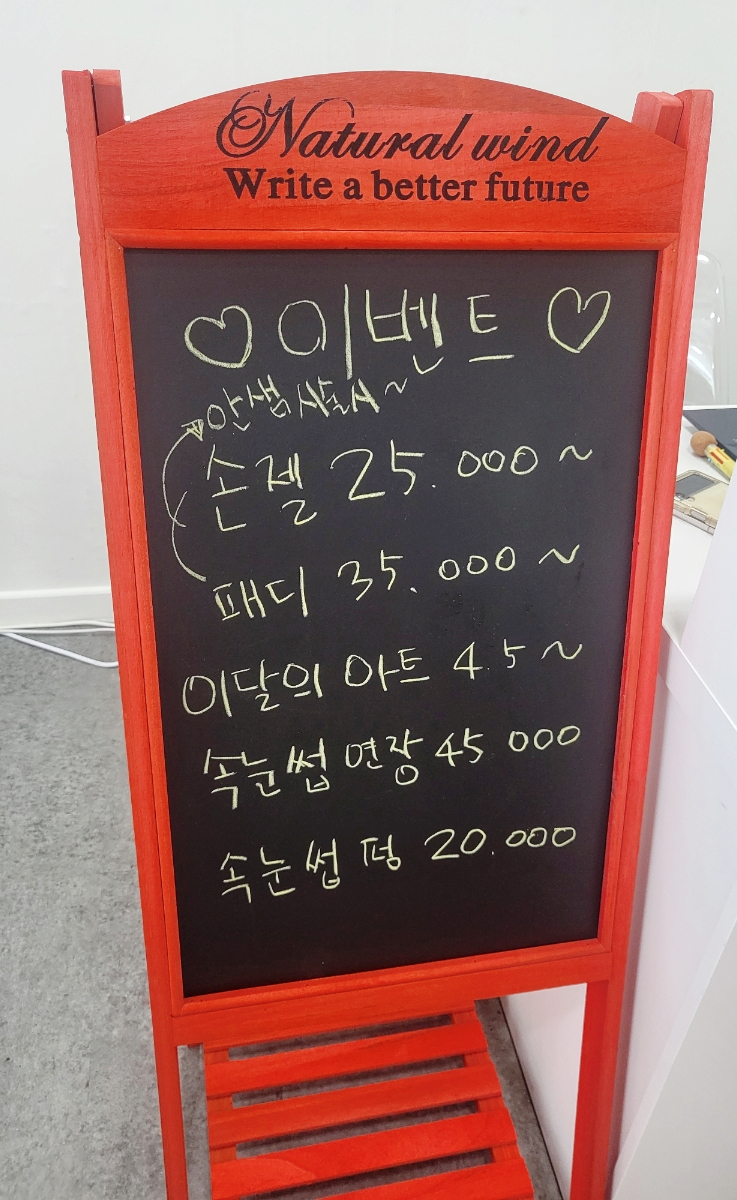 Natural wind
Write a better future
♡ 이벤트 ♡
안쌤 시술시~
손젤 25.000 ~
패디 35.000 ~
이달의 아트 4.5 ~
속눈썹 연장 45 000
속눈썹 펌 20.000